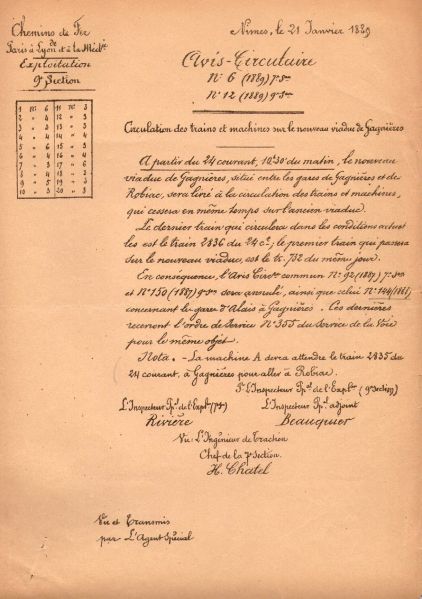 Chemins de Fer
de
Paris à Lyon et à la Médté
Exploitation
9e Section
Nimes, le 21 Janvier 1889
Avis-Circulaire
No 6 (1889) 7e Son
No 12 (1889) 9e Son
1 No 6 11 No 3
2 " 4 12 " 3
Circulation des trains et machines sur le nouveau viaduc de Gagnières
A partir du 24 courant, 10h30 du matin, le nouveau
viaduc de Gagnières, situé entre les gares de Gagnières et de
Robiac, sera livré à la circulation des trains et machines,
qui cessera en même temps sur l'ancien viaduc.
Le dernier train qui circulera dans les conditions actuel
les est le train 2836 du 24 ct; le premier train qui passera
sur le nouveau viaduc, est le tr. 732 du même jour.
En conséquence, l'Avis Circre commun No 92 (1887) 7e Son
et No 150 (1887) 9e Son sera annulé, ainsi que celui No 144 (1888)
concernant la gare d'Alais à Gagnières. Ces dernières
recevront l'ordre de Service No 355 du Service de la Voie
pour le même objet.
Nota. - La machine A devra attendre le train 2835 du
24 courant, à Gagnières pour aller à Robiac.
Pr L'Inspecteur Ppal de l'Explon (9e Section)
L'Inspecteur Ppal de l'Explon (7e Son) L'Inspecteur Ppal adjoint
Rivière Beauquier
Vu: L'Ingénieur de Traction
Chef de la 7e Section.
H. Chatel
Vu et Transmis
par L'Agent Spécial